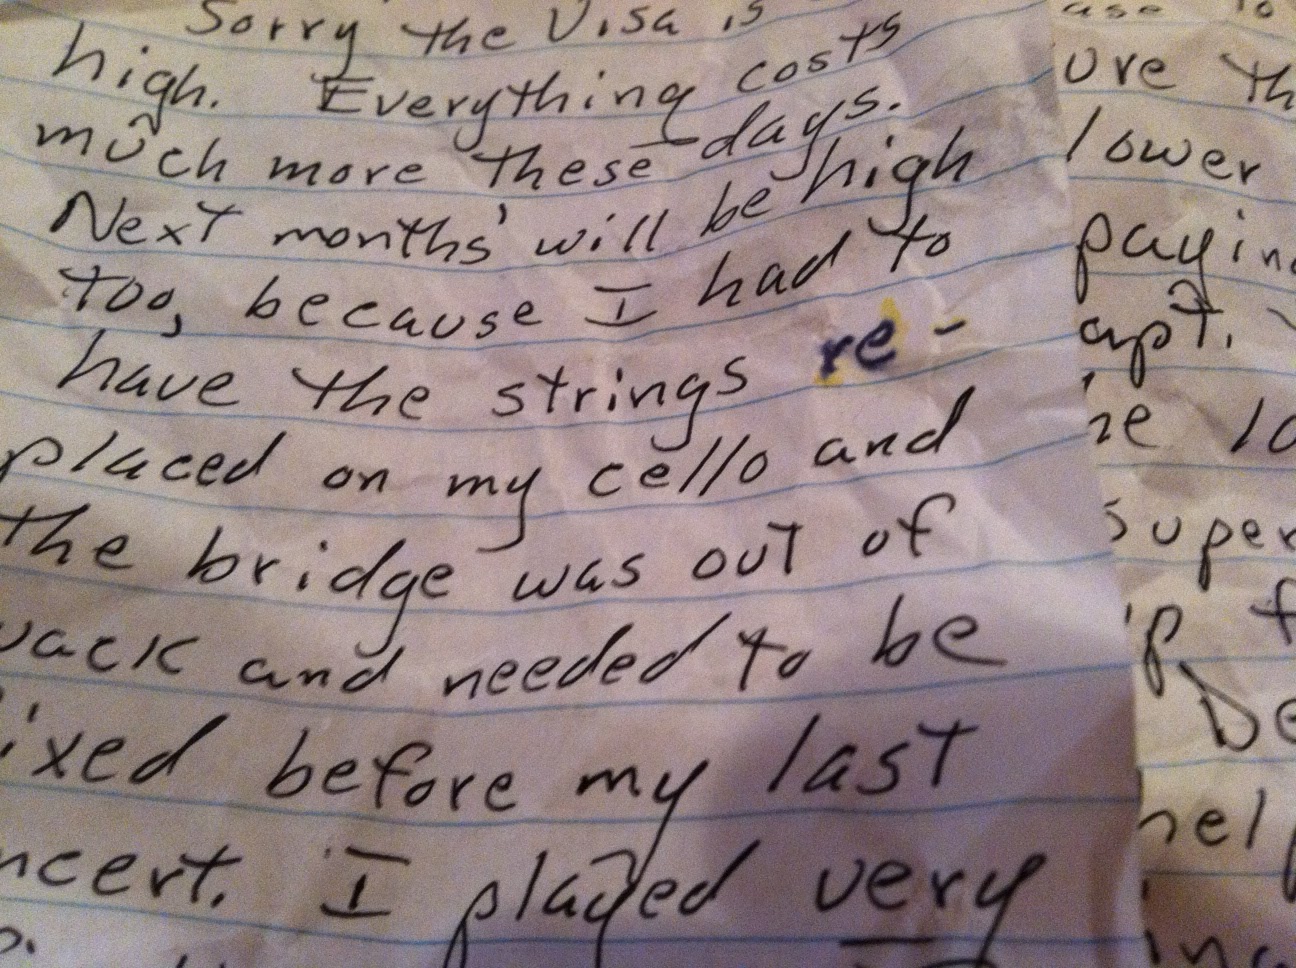 Sorry the Visa is
high. Everything costs
much more these days.
Next months' will be high
too, because I had to
have the strings re-
placed on my cello and
the bridge was out of
wack and needed to be
ixed before my last
ncert. I played very
ure th
lower
paying
apt.
he lo
super
p f
De
help